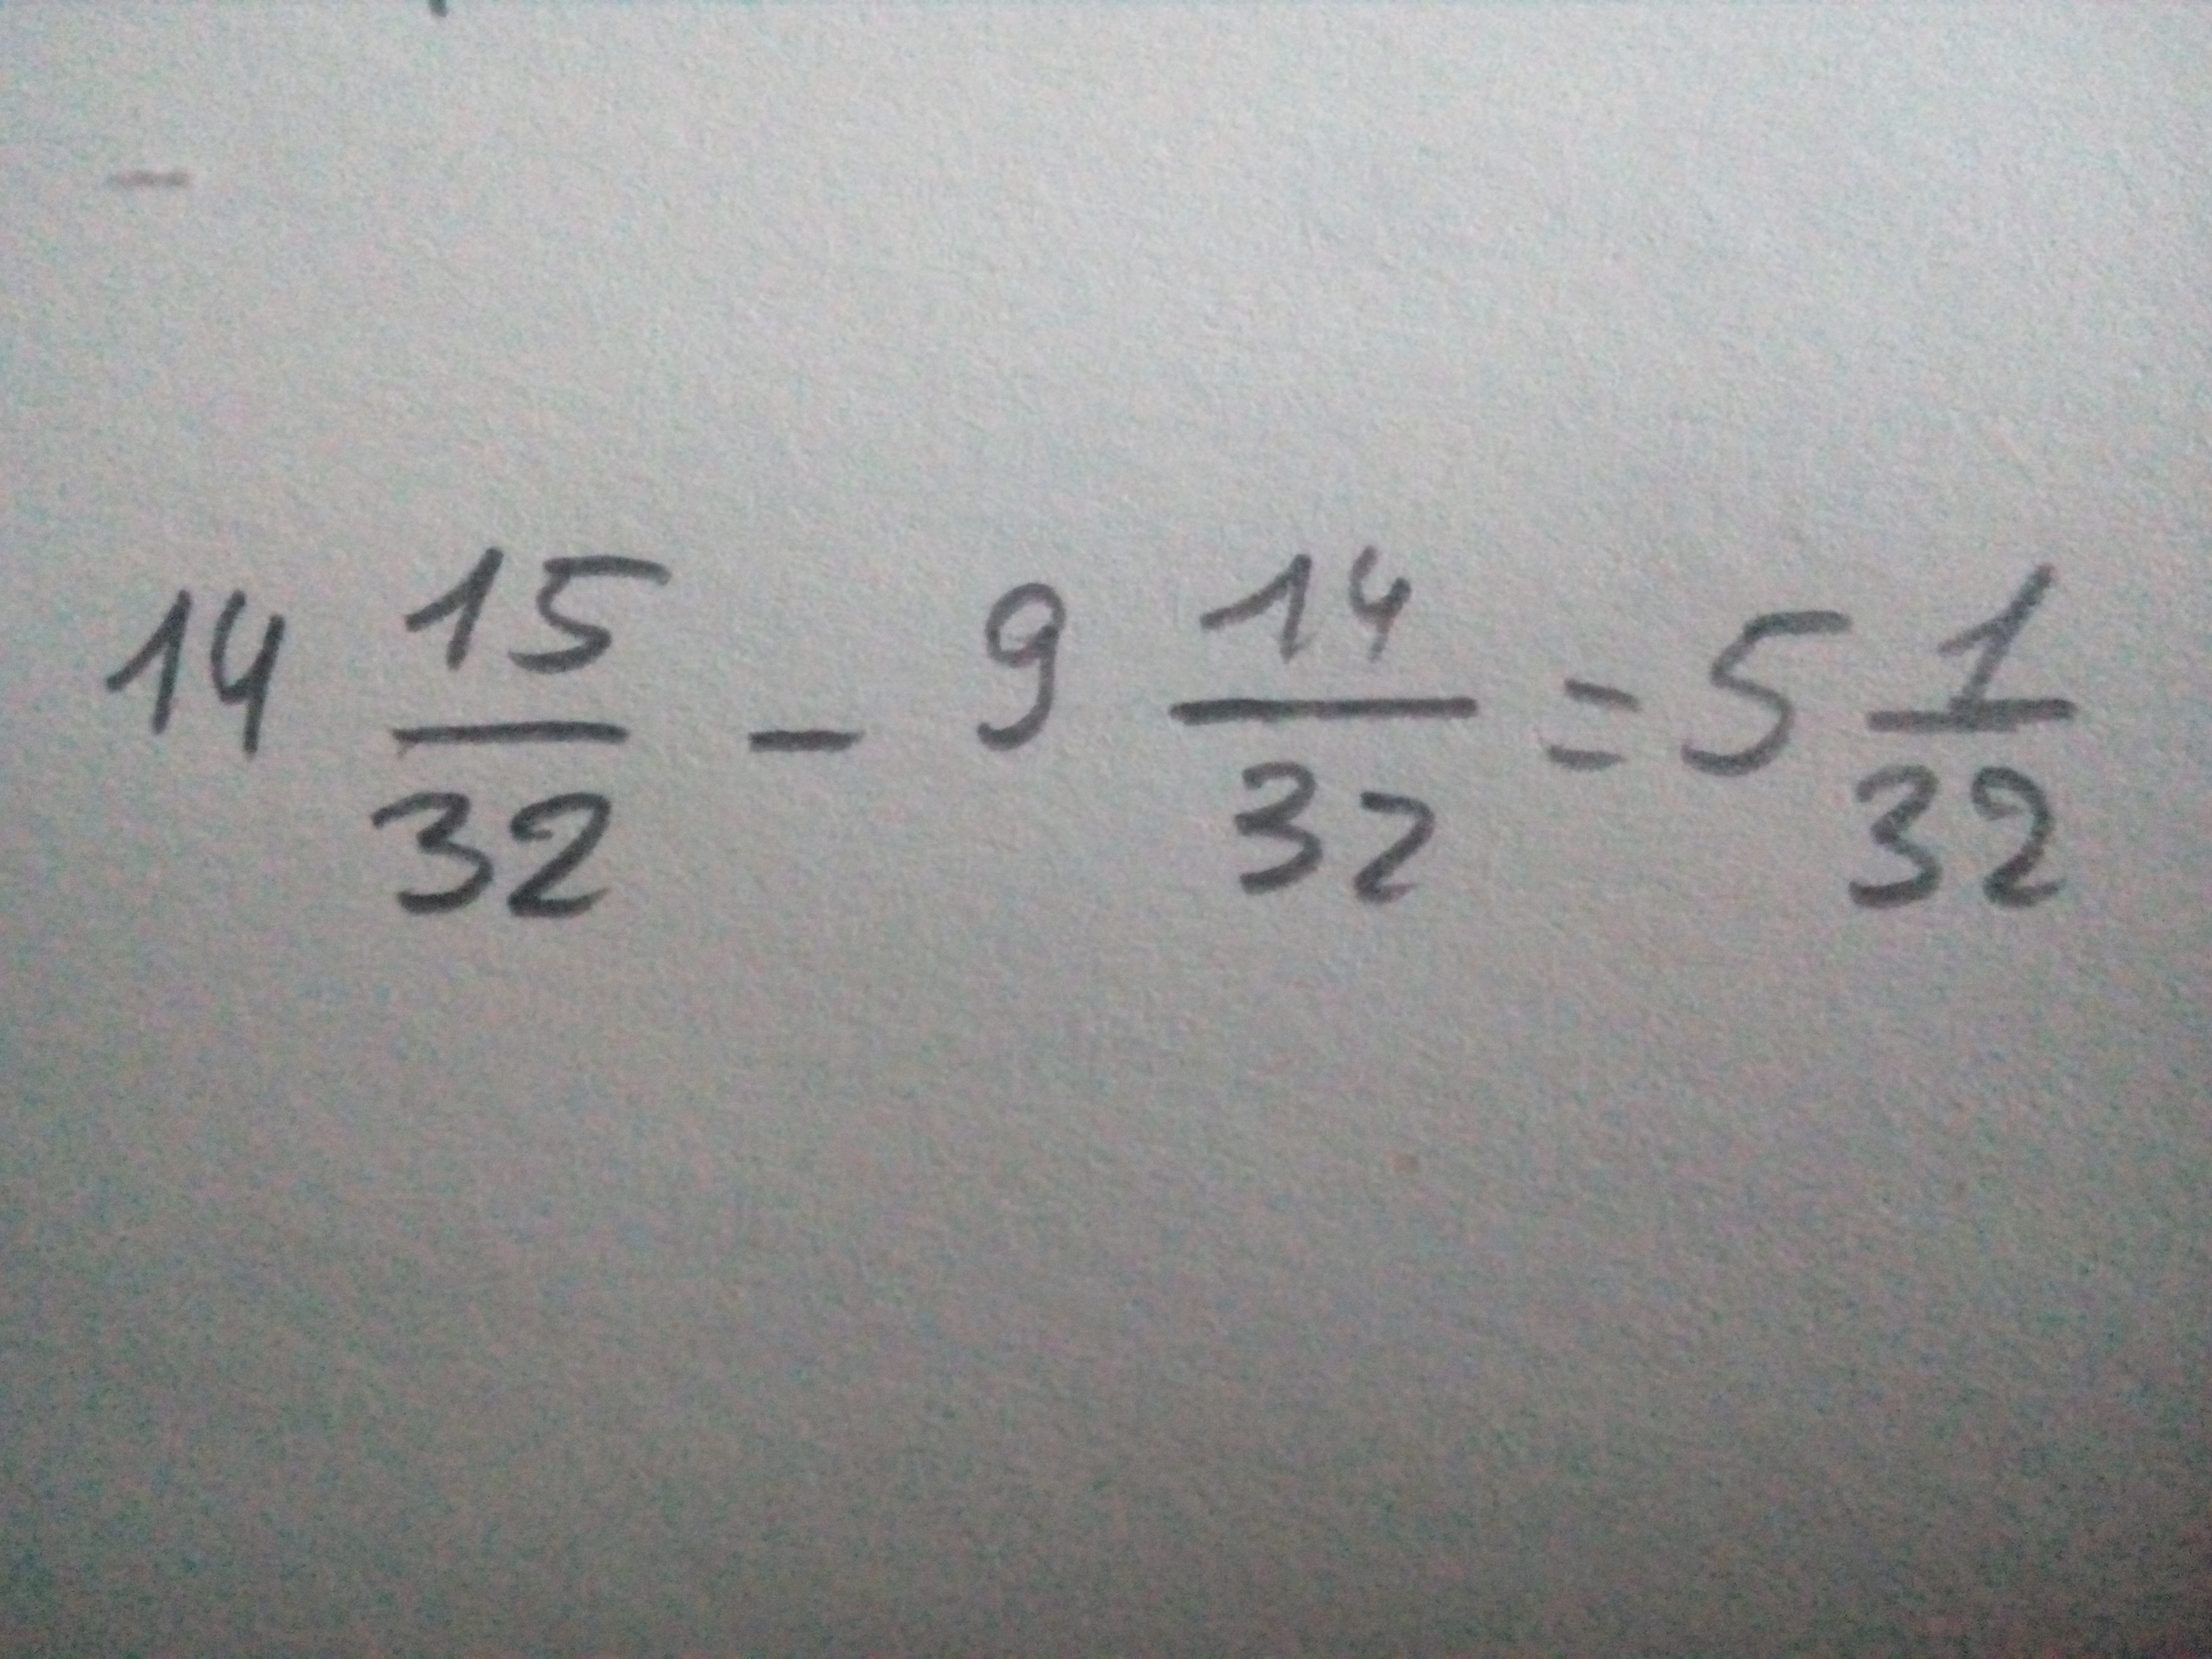 14 15/32 - 9 14/32 = 5 1/32